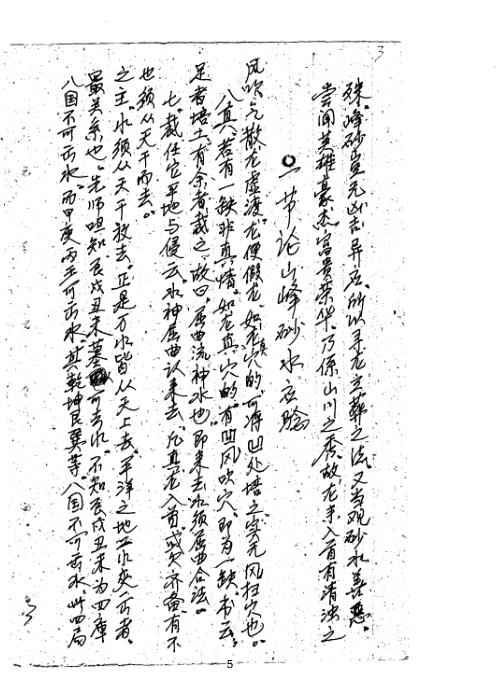 3
殊。峰砂岂无凶吉异应。所以寻龙立葬之法。又当观砂水善恶。
尝闻英雄豪杰。富贵荣华。乃系山川之秀。故龙未入首有清浊之
〇一节论山峰砂水应验
风吹气散龙虚渡。龙便假龙。如龙真穴的。可将凹处培之。实无风扫穴也。
八真。若有一缺非真情。如龙真穴的。有凹风吹穴。即为一缺。书云
足者培土。有余者裁之。故曰。屈曲流神水也。即来去水须屈曲合法。
七裁任它平地与侵云。水神屈曲认来去。凡真龙入首或欠齐备。有不
也须从天干而去。
之主。水须从天干放去。正是万水皆从天上去。平洋之地二水交合者。
最关系也。先师但知辰戌丑未墓可去水。不知辰戌丑未为四库
八国不可去水。而甲庚丙壬可去水。其乾坤艮巽等八国不可去水。此四局
5